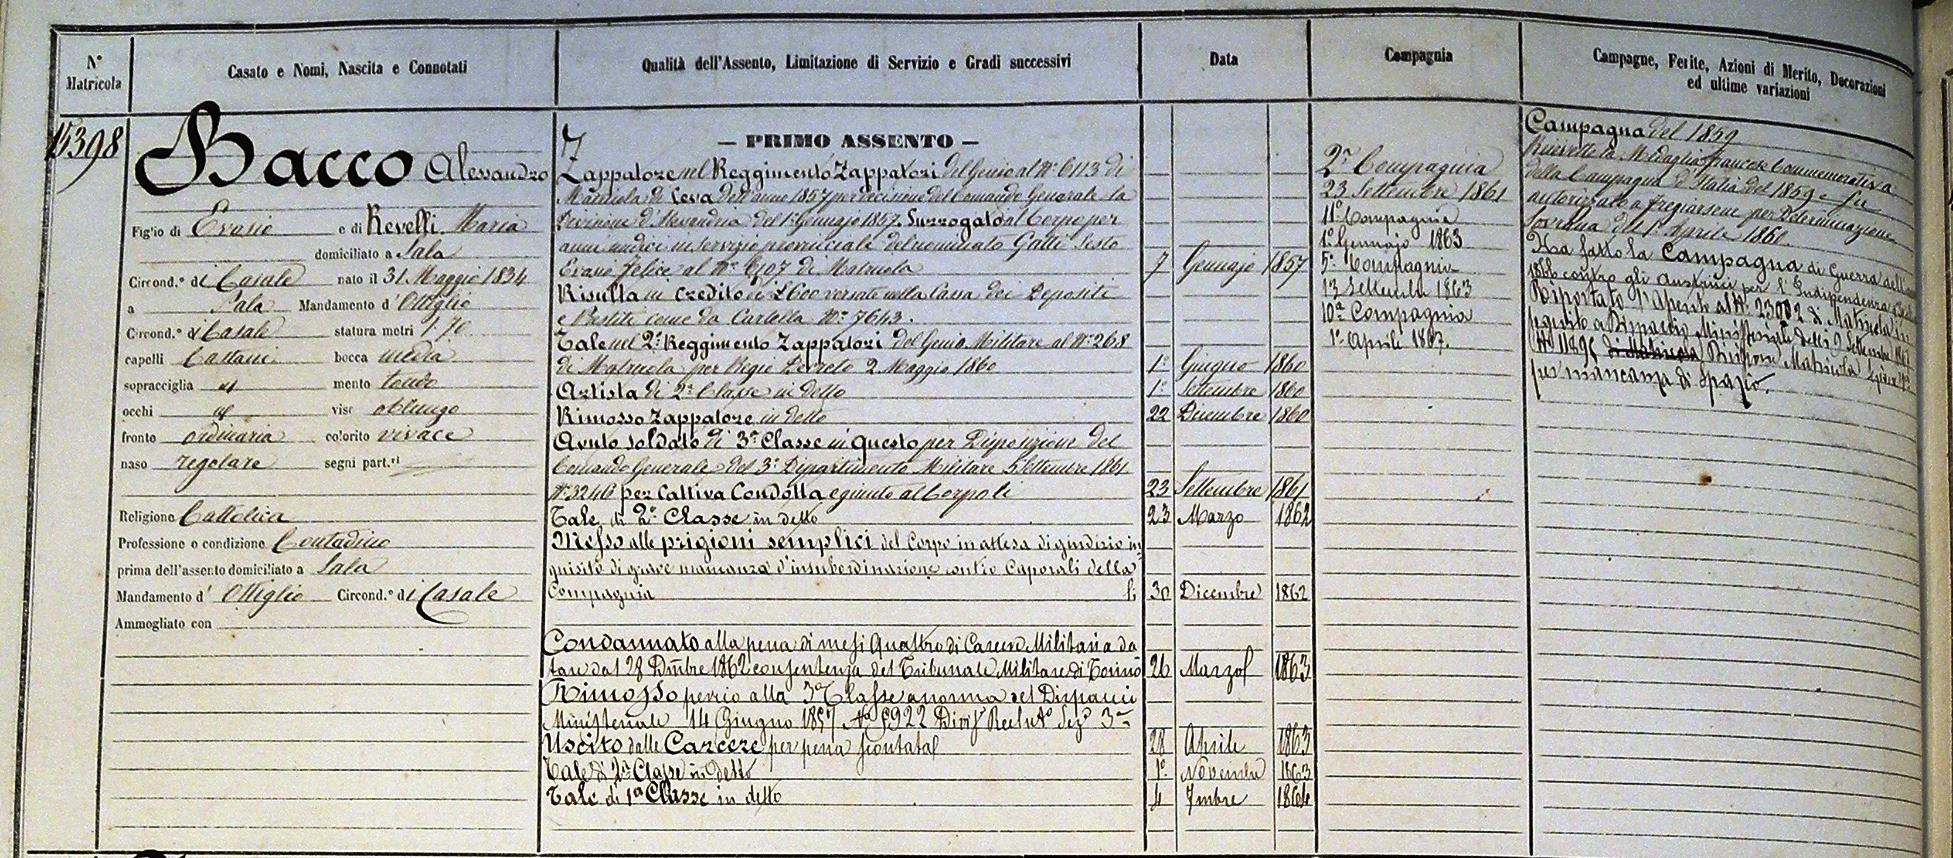 N° Matricola
Casato e Nomi, Nascita e Connotati
Qualità dell'Assento, Limitazione di Servizio e Gradi successivi
Data
Compagnia
Campagne, Ferite, Azioni di Merito, Decorazioni
ed ultime variazioni
15398
Bacco Alessandro
Figlio di Evasio e di Revelli Maria
domiciliato a Sala
Circond.° di Casale nato il 31 Maggio 1834
a Sala Mandamento d'Ottiglio
Circond.° di Casale statura metri 1.70
capelli Castani bocca media
sopracciglia id mento tondo
occhi id viso oblungo
fronte ordinaria colorito vivace
naso regolare segni part.ri
Religione Cattolica
Professione o condizione Contadino
prima dell'assento domiciliato a Sala
Mandamento d' Ottiglio Circond.° di Casale
Ammogliato con
— PRIMO ASSENTO —
Zappatore nel Reggimento Zappatori del Genio al N° 6113 di
Matricola di Leva dell'anno 1857 per decisione del Comando Generale la
Divisione d'Alessandria del 1° Gennajo 1857. Surrogato al Corpo per
anni undici in servizio provinciale del nominato Gatti Sesto
Evasio Felice al N° 6107 di Matricola 7 Gennajo 1857
Risulta in credito di £ 600 versate nella Cassa dei Depositi
e Prestiti come da Cartella N° 7643.
Tale nel 2° Reggimento Zappatori del Genio Militare al N° 268
di Matricola per Regio Decreto 2 Maggio 1860 1° Giugno 1860
Artista di 2ª Classe in detto 1° Settembre 1860
Rimosso Zappatore in detto 22 Dicembre 1860
Avuto soldato di 3ª Classe in questo per Disposizione del
Comando Generale del 3° Dipartimento Militare 5 Settembre 1861
N° 3240 per Cattiva Condotta e giunto al Corpo li 23 Settembre 1861
Tale di 2ª Classe in detto 23 Marzo 1862
Messo alle prigioni semplici del Corpo in attesa di giudizio in=
quisito di grave mancanza d'insubordinazione contro Caporali della
Compagnia li 30 Dicembre 1862
Condannato alla pena di mesi Quattro di Carcere Militare da
tare dal 28 Dmbre 1862 con sentenza del Tribunale Militare di Torino 26 Marzo 1863
Rimosso perciò alla 3ª Classe a norma del Dispaccio
Ministeriale 14 Giugno 1857 N° 5922 Divis. Reclut° Sez° 3ª
Uscito dalle Carcere per pena scontata 28 Aprile 1863
Tale di 2ª Classe in detto 1° Novembre 1863
Tale di 1ª Classe in detto 4 7mbre 1864
2ª Compagnia
23 Settembre 1861
11ª Compagnia
1° Gennajo 1863
5ª Compagnia
13 Settembre 1863
10ª Compagnia
1° Aprile 1867.
Campagna del 1859
Ricevette la Medaglia francese Commemorativa
della Campagna d'Italia del 1859 e fu
autorizzato a fregiarsene per Determinazione
Sovrana del 1° Aprile 1860.
Ha fatto la Campagna di Guerra dell'anno
1866 contro gli Austriaci per l'Indipendenza
Riportato l'Assento al N° 23002 di Matricola in
seguito a Dispaccio Ministeriale delli 9 Settembre
N° 11896 di Matricola
per mancanza di spazio.